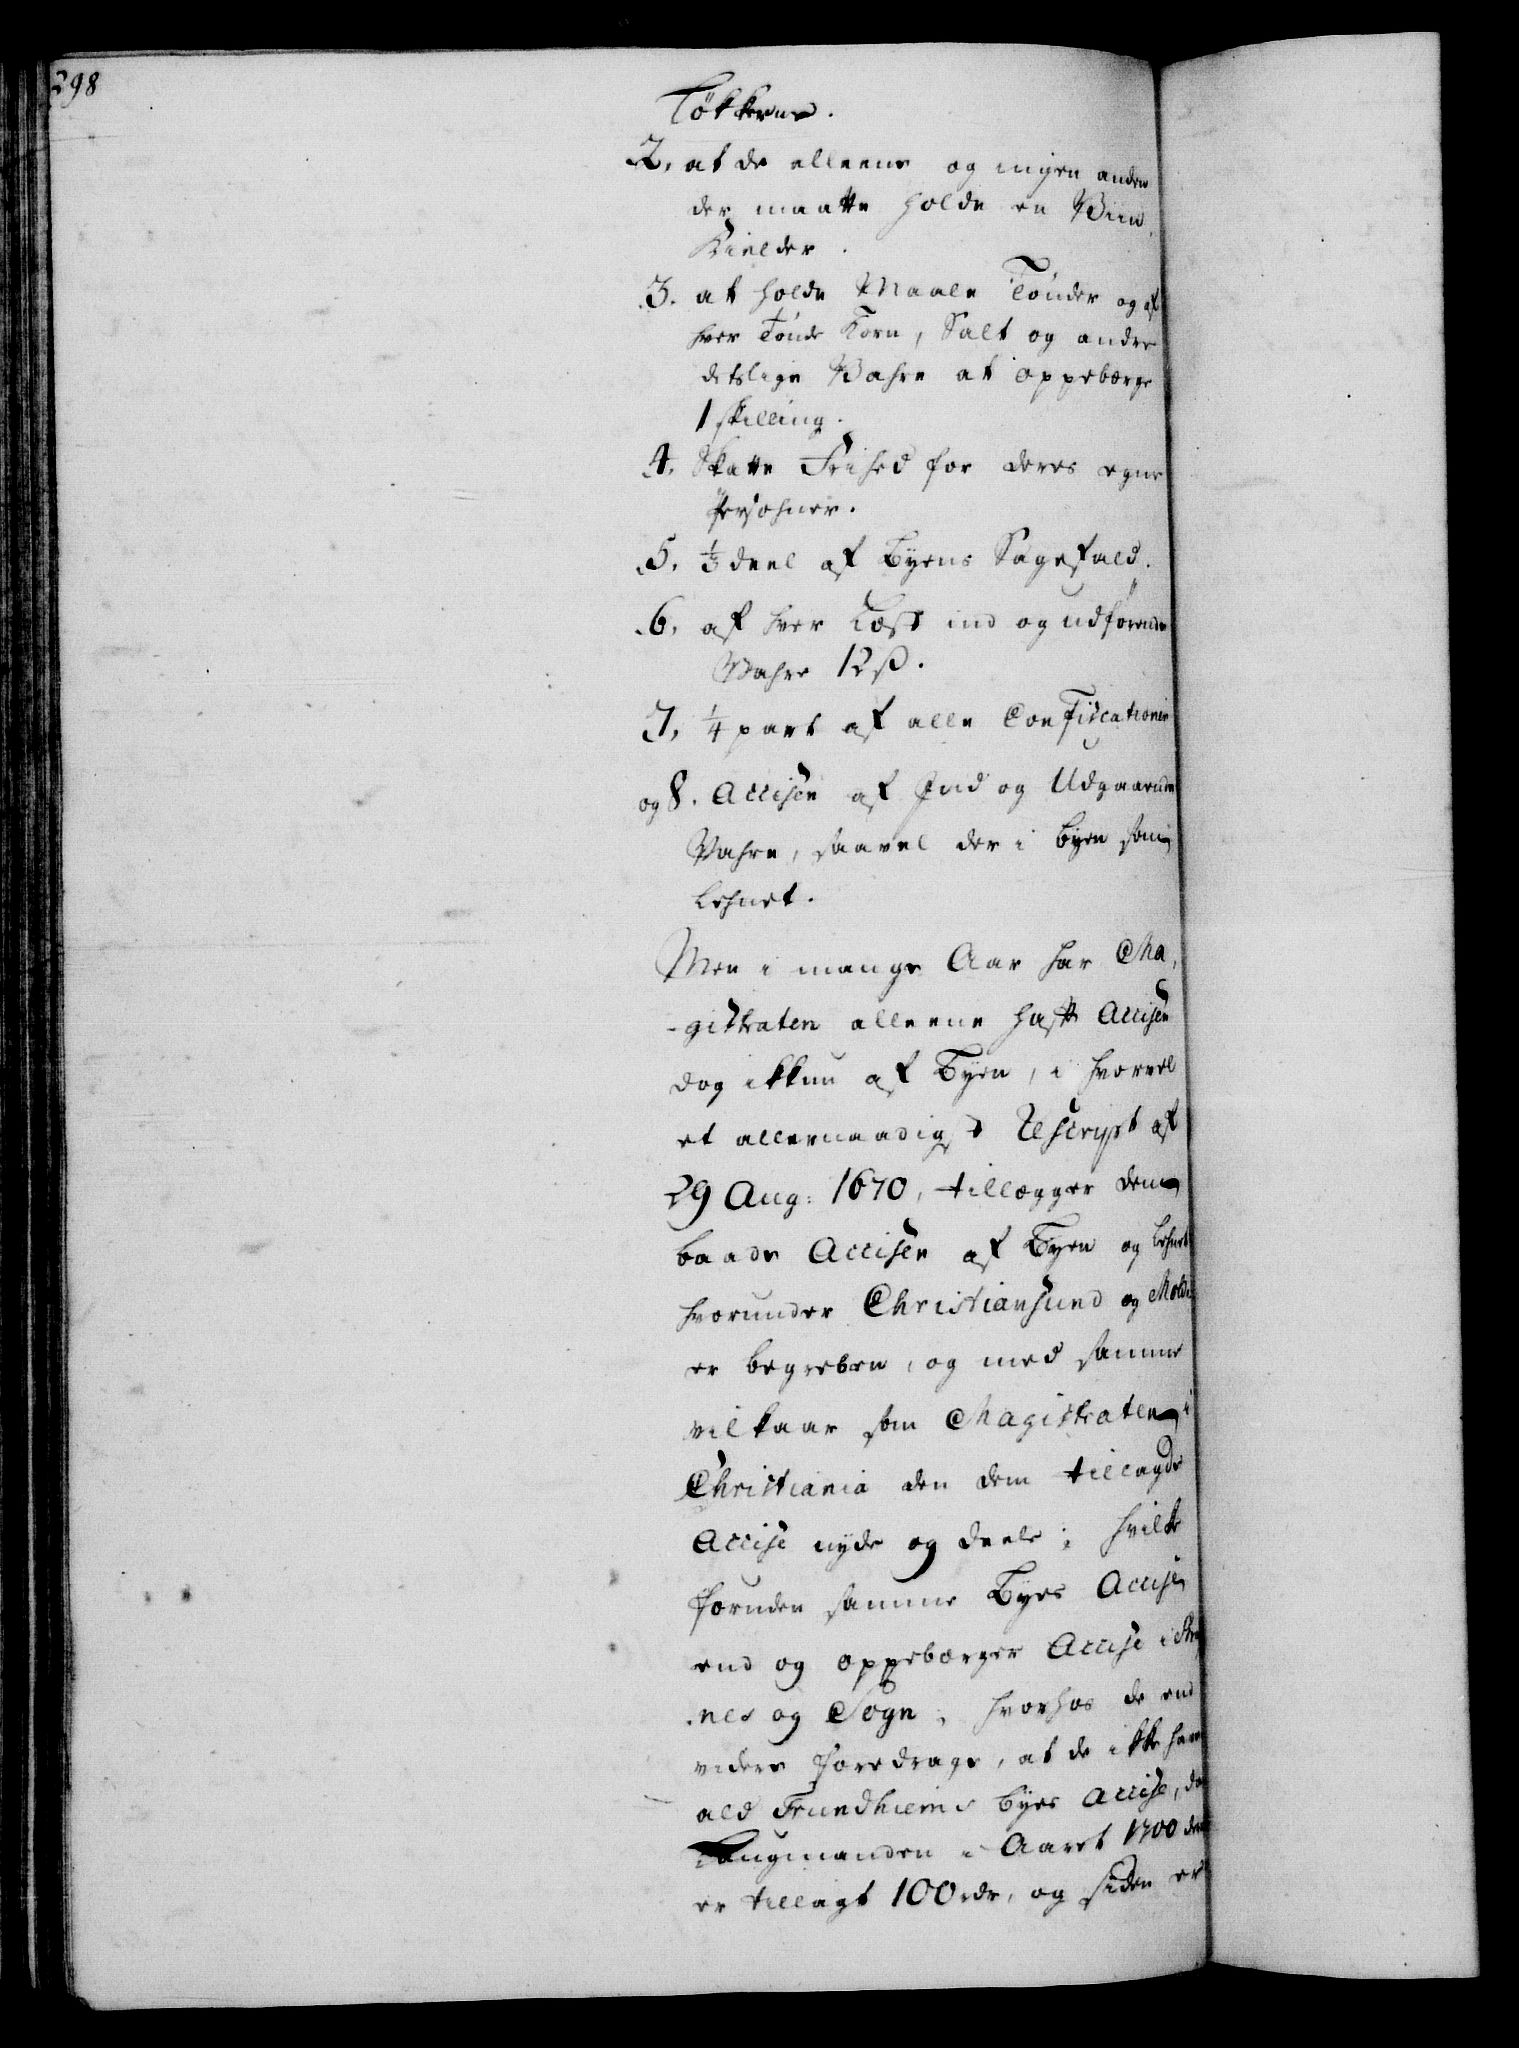 298
Løkkerne.
2, at de alleene og ingen anden
der maatte holde en Viin
Kielder.
3. at holde Maale Tønder og af
hver Tønde Korn, Salt og andre
deslige Vahre at oppebærge
1 skilling.
4, Skatte Frihed for deres egne
Persohner.
5, 1/3 deel af Byens Sagefald.
6, af hver Læst ind og udførende
Vahre 12 ß.
7, 1/4 part af alle Confiscationer
og 8. Accisen af Ind og Udgaaende
Vahre, saavel der i byen som
Lehnet.
Men i mange Aar har Ma,
-gistraten alleene haft Accisen
dog ikkun af Byen, i hvorvel
et allernaadigst Rescript af
29 Aug: 1670, tillægger dem
baade Accisen af Byen og Lehnet
hvorunder Christiansund og Molde
er begreben, og med samme
vilkaar som Magistraten i
Christiania den dem tillagde
Accise nyde og deele; hvilke
foruden samme Byes Accise
end og oppebærger Accise i
.nes og Sogn, hvorhos de end
videre foredrage, at de ikke have
ald Trundhiems byes accise, da
Laugmanden i Aaret 1700 der
er tillagt 100 rdr, og siden er